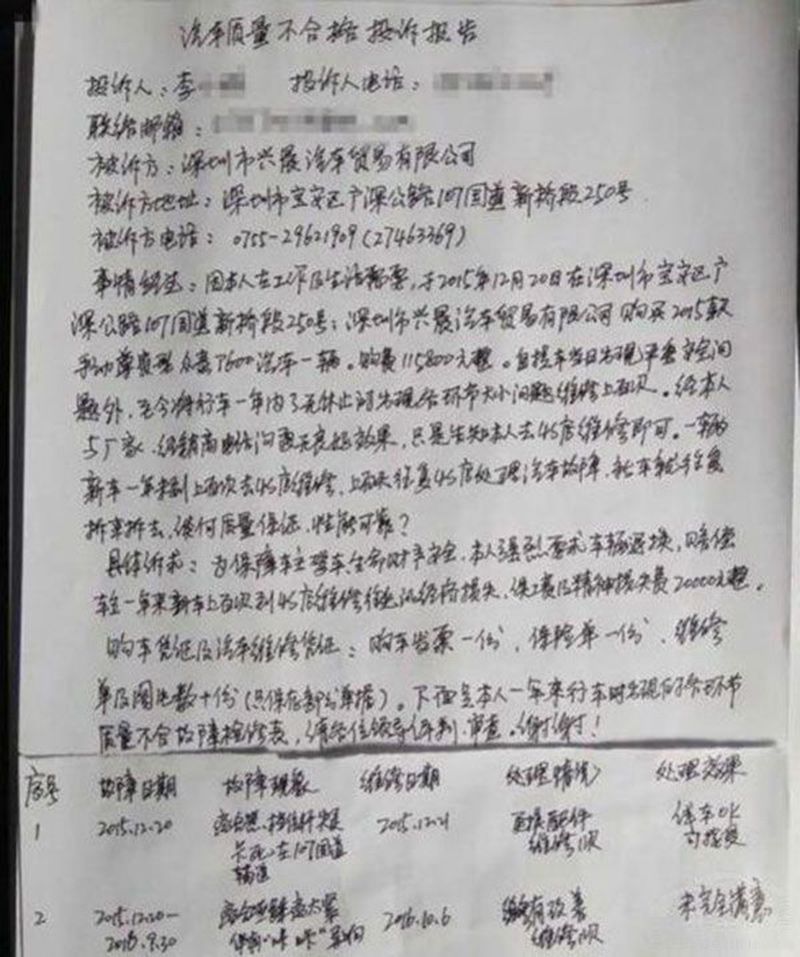 汽车质量不合格投诉报告
投诉人：李 投诉人电话：
联络邮箱：
被诉方：深圳市兴晟汽车贸易有限公司
被诉方地址：深圳市宝安区广深公路107国道新桥段250号
被诉方电话：0755-29621909(27463369)
事情经过：因本人在工作及生活需要，于2015年12月20日在深圳市宝安区广
深公路107国道新桥段250号：深圳市兴晟汽车贸易有限公司购买2015款
手动尊贵型众泰T600汽车一辆。购费115800元整。自提车当日出现严重安全问
题外，至今将行车一年内了无休止的出现各环节大小问题维修上百次。经本人
与厂家、经销商电话沟通无良好效果，只是告知本人去4S店维修即可。一辆
新车一年未到上百次去4S店维修，上百次往复4S店处理汽车故障，新车就往复
拆来拆去，谈何质量保证，性能可靠？
具体诉求：为保障车主驾车生命财产安全，本人强烈要求车辆退换，赔偿
车主一年来新车上百次到4S店维修往返的经济损失、误工费及精神损失费20000元整。
购车凭证及汽车维修凭证：购车发票一份、保险单一份、维修
单及图片数十份(只保存部分单据)。下面是本人一年来行车时出现的各环节
质量不合故障检修表，请各位领导评判、审查。谢谢！
序号 故障日期 故障现象 维修日期 处理情况 处理效果
1 2015.12.20 离合器、档位杆突然 2015.12.21 更换配件 停车OK
卡死，在107国道 维修1次 可接受
辅道
2 2015.12.20- 2016.10.6 有改善 未完全满意
2016.9.30 "咔咔"异响 维修1次